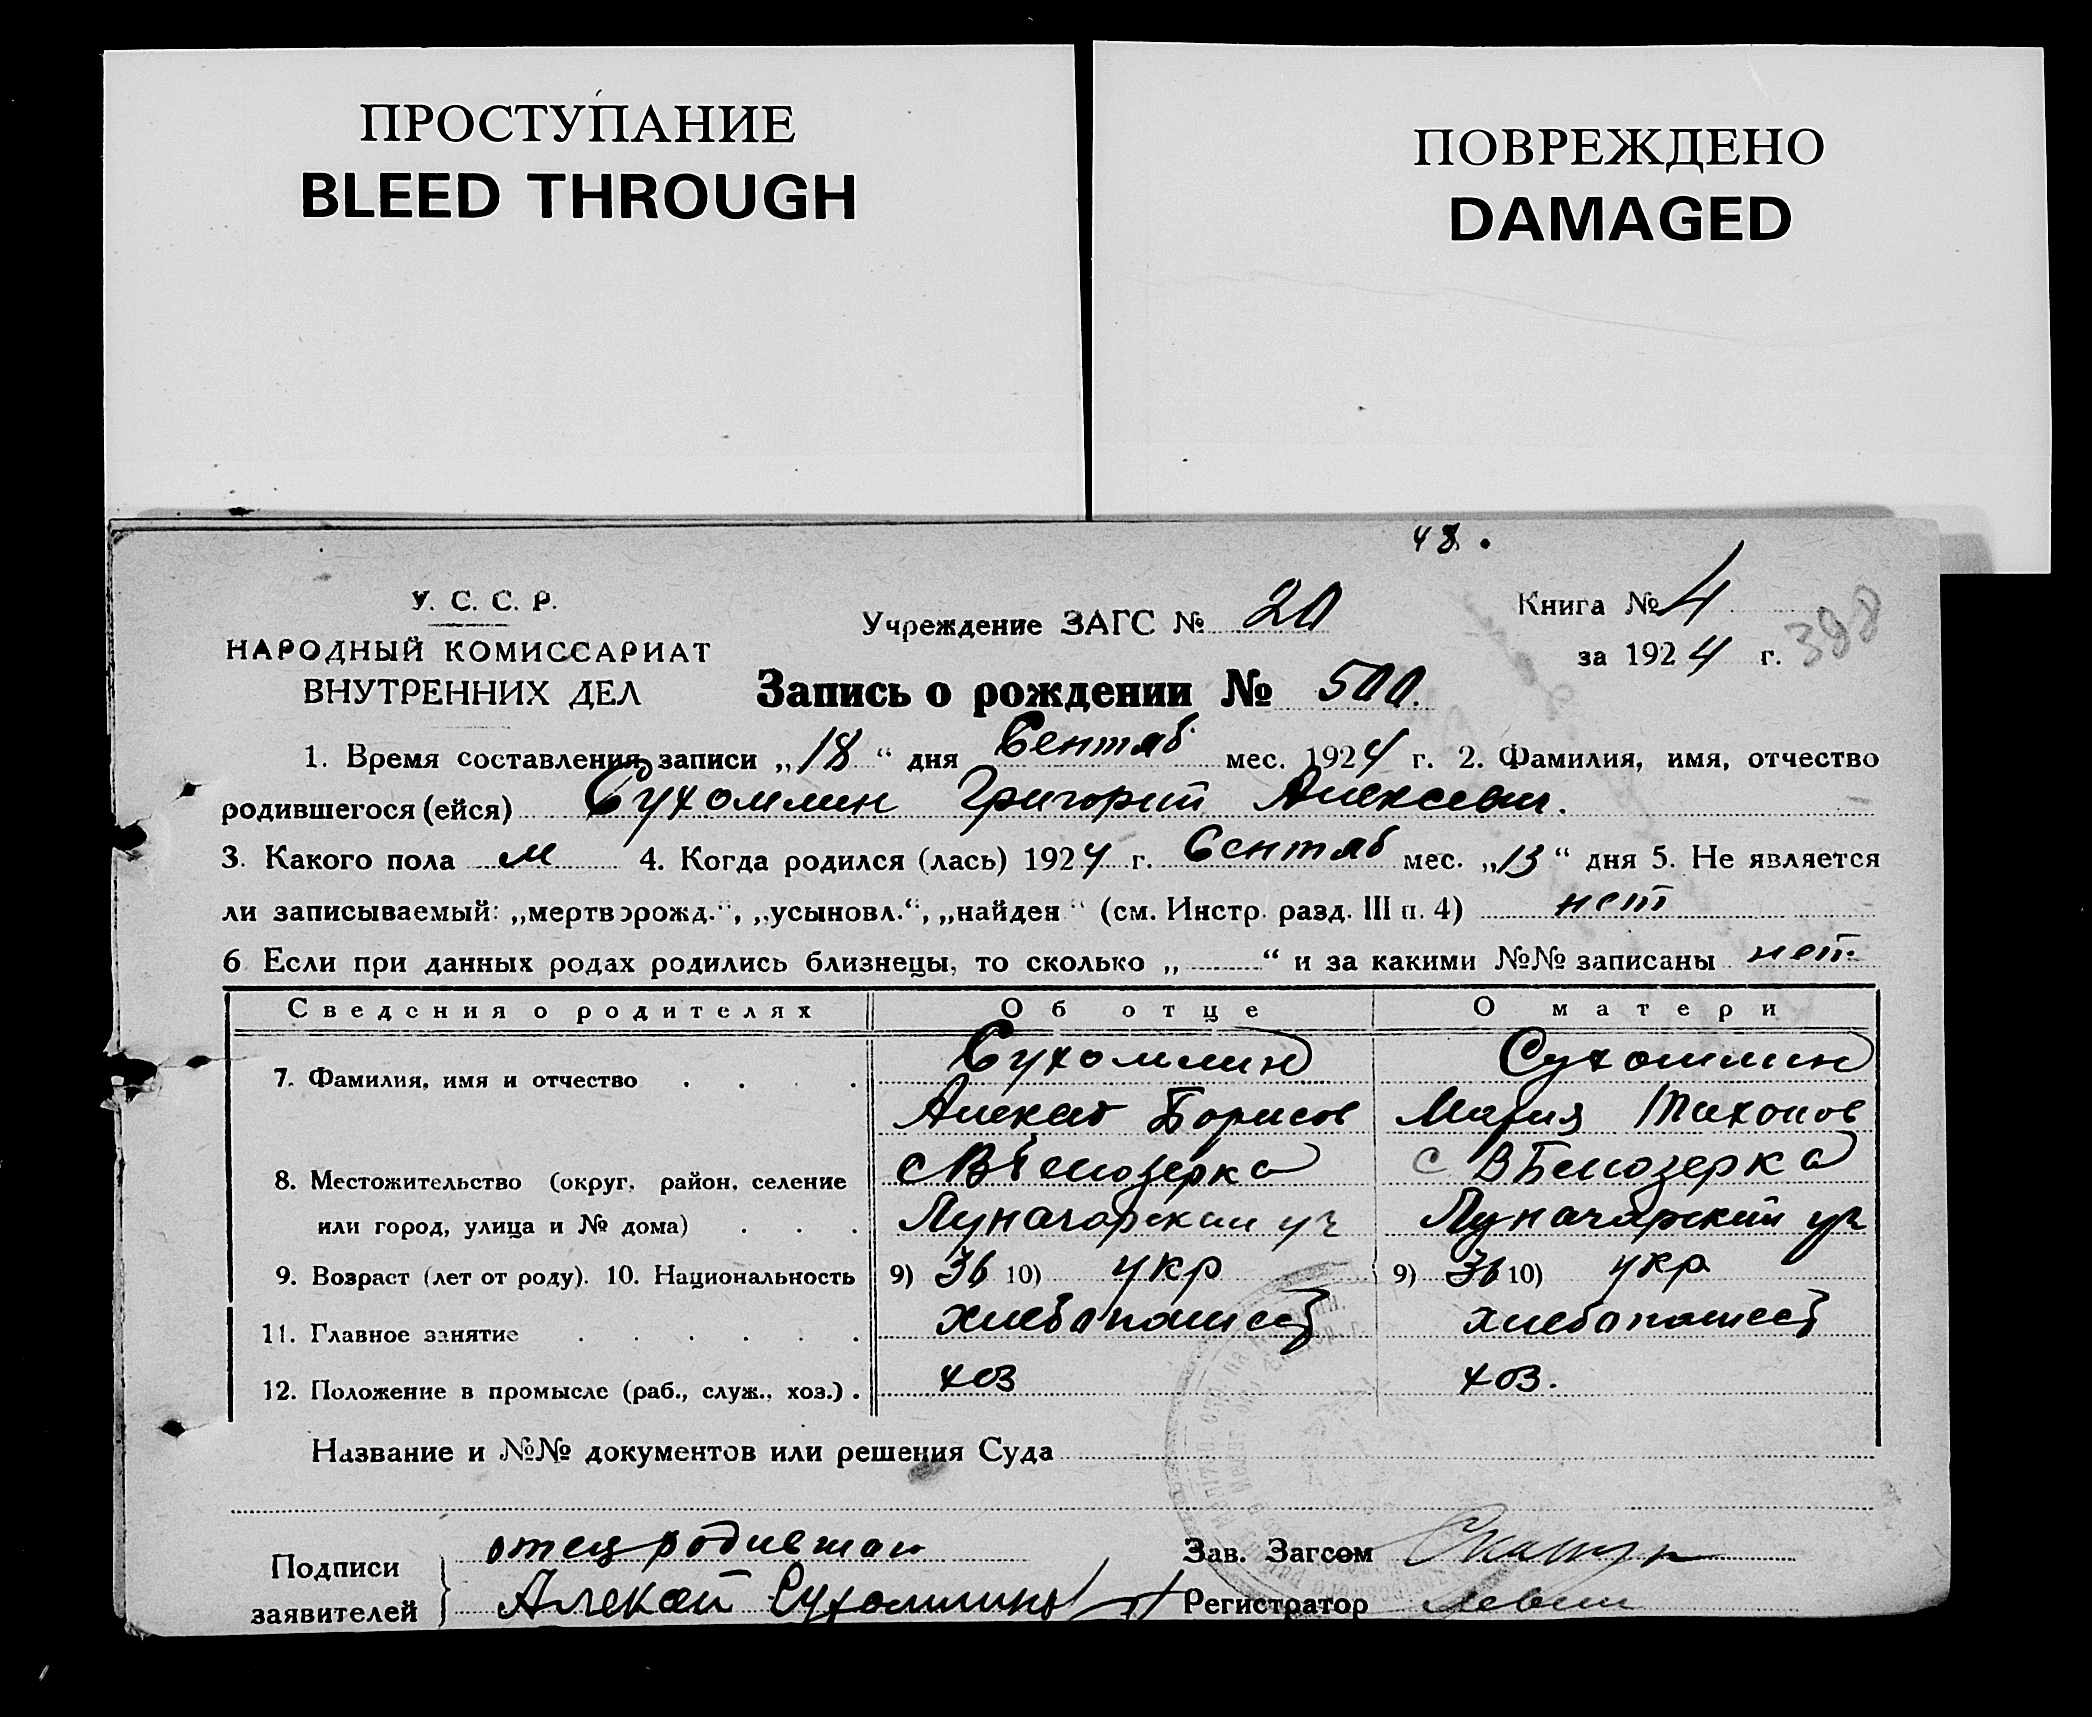 ПРОСТУПАНИЕ
BLEED THROUGH
ПОВРЕЖДЕНО
DAMAGED
48.
У. С. С. Р.
НАРОДНЫЙ КОМИССАРИАТ
ВНУТРЕННИХ ДЕЛ
Учреждение ЗАГС № 20
Книга № 4
за 1924 г. 398
Запись о рождении № 500.
1. Время составления записи „18“ дня Сентяб. мес. 1924 г. 2. Фамилия, имя, отчество
родившегося (ейся) Сухомлин Григорий Алексевич.
3. Какого пола м 4. Когда родился (лась) 1924 г. Сентяб мес. „13“ дня 5. Не является
ли записываемый: „мертворожд.“, „усыновл.“, „найден“ (см. Инстр. разд. III п. 4) нет
6 Если при данных родах родились близнецы, то сколько „ “ и за какими №№ записаны нет.
Сведения о родителях Об отце О матери
7. Фамилия, имя и отчество Сухомлин Сухомлин
Алексей Борисов Мария Тихонов
8. Местожительство (округ, район, селение с В Белозерка с В Белозерка
или город, улица и № дома) Луначарский Луначарский
9. Возраст (лет от роду). 10. Национальность 9) 36 10) укр 9) 36 10) укр
11. Главное занятие хлебопашест хлебопашест
12. Положение в промысле (раб., служ., хоз.) хоз хоз.
Название и №№ документов или решения Суда
Подписи заявителей
отец родившаи
Алексей Сухомлинъ
Зав. Загсом
Регистратор Левин